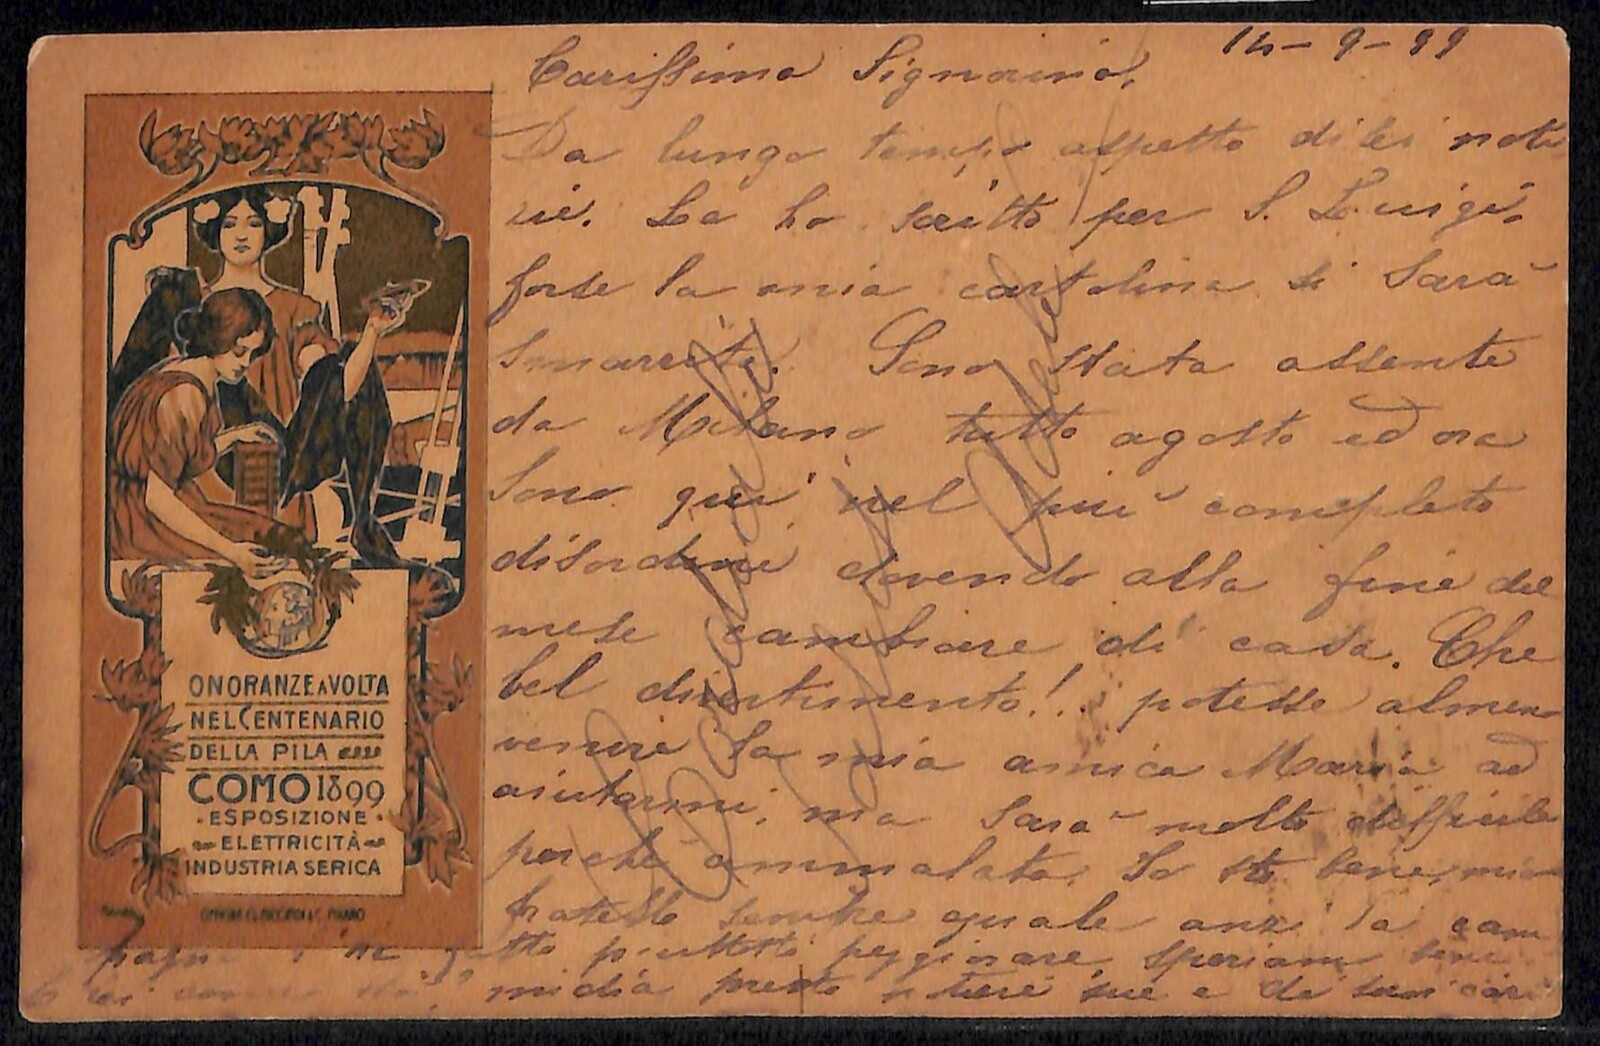 14-9-99
Carissima Signorina,
Da lungo tempo aspetto di lei noti
zie. Le ho scritto per S. Luigi,
forse la mia cartolina si sarà
smarrita. Sono stata assente
da Milano tutto agosto ed ora
sono qui nel più completo
disordine dovendo alla fine del
mese cambiare di casa. Che
bel divertimento!! potesse almeno
venire la mia amica Maria ad
aiutarmi, ma sarà molto difficile
perché ammalata. Io sto bene, mio
fratello sempre quale anzi la cam
pagna fatto piuttosto peggiorare, speriam bene
mi dia presto notizie sue e di suoi cari
ONORANZE A VOLTA
NEL CENTENARIO
DELLA PILA
COMO 1899
ESPOSIZIONE
ELETTRICITÀ
INDUSTRIA SERICA